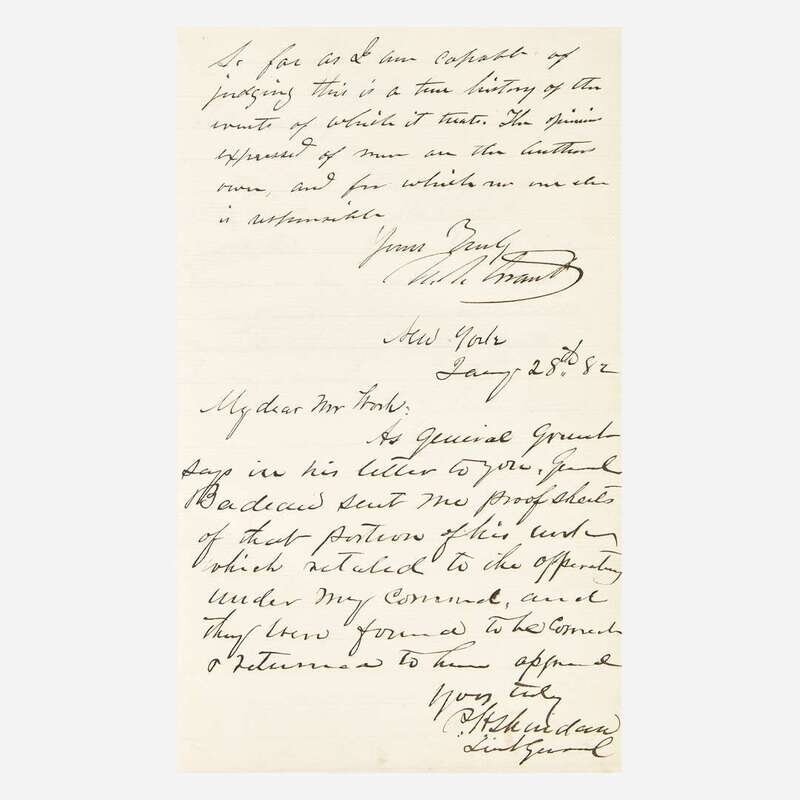 So far as I am capable of
judging this is a true history of the
events of which it treats. The opinions
expressed of men are the Authors
own, and for which no one else
is responsible
Yours Truly
U. S. Grant
New York
Jany 28th 82
My dear Mr Work:
As General Grant
says in his letter to you, Genl
Badeau sent me proof sheets
of that portion of his work
which related to the
under my command, and
they were found to be correct
& returned to him
Yours truly
P. H Sheridan
Lieut General